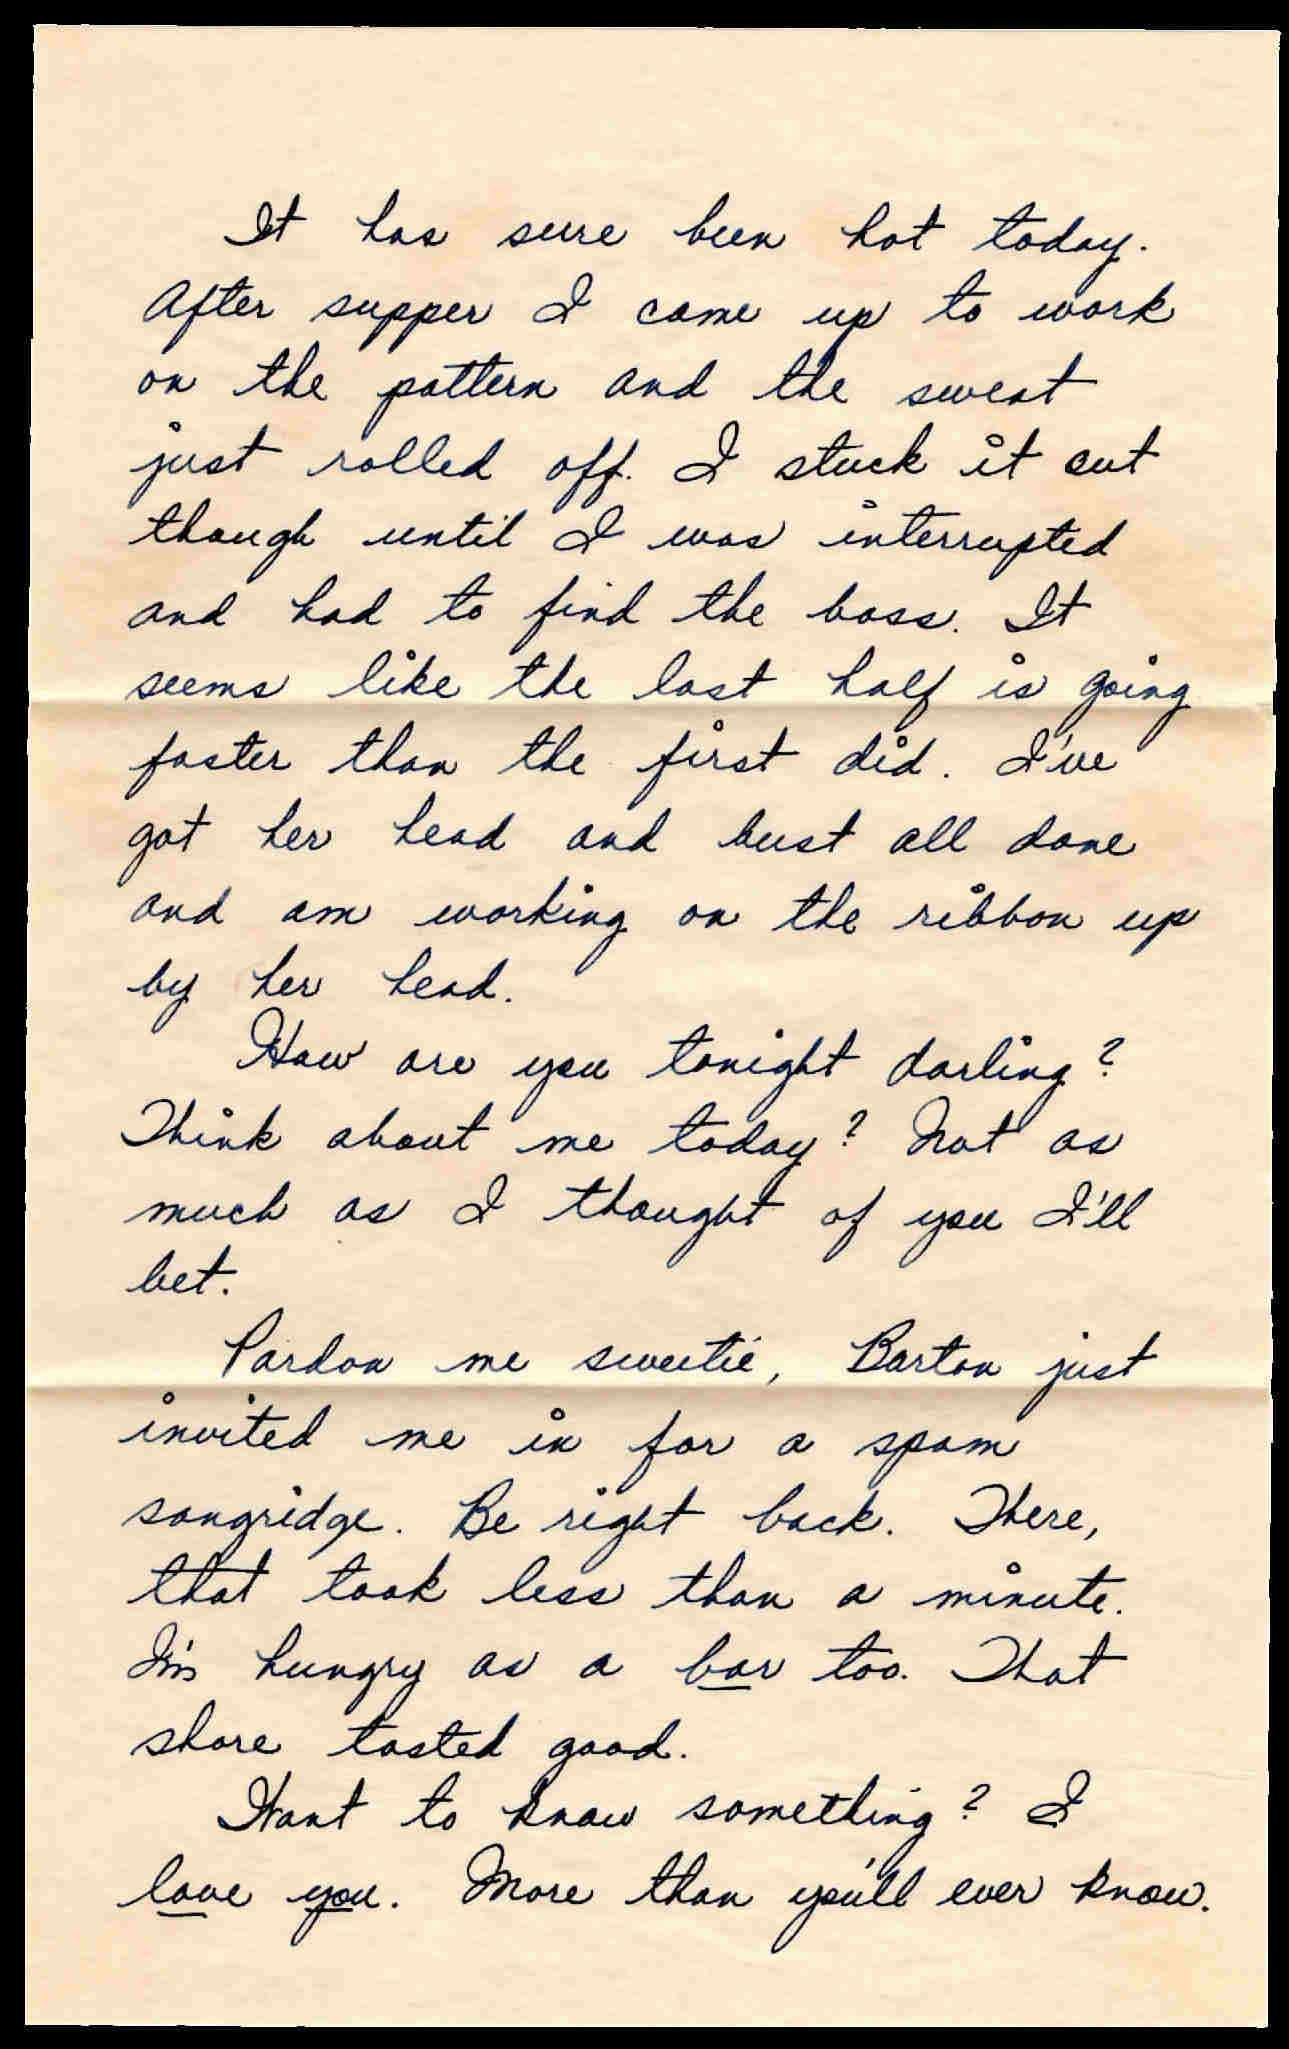 It has sure been hot today.
After supper I came up to work
on the pattern and the sweat
just rolled off. I stuck it out
though until I was interrupted
and had to find the boss. It
seems like the last half is going
faster than the first did. I've
got her head and bust all done
and am working on the ribbon up
by her head.
How are you tonight darling?
Think about me today? Not as
much as I thought of you I'll
bet.
Pardon me sweetie, Barton just
invited me in for a spam
sangridge. Be right back. There,
that took less than a minute.
I'm hungry as a bar too. That
shore tasted good.
Want to know something? I
love you. More than you'll ever know.